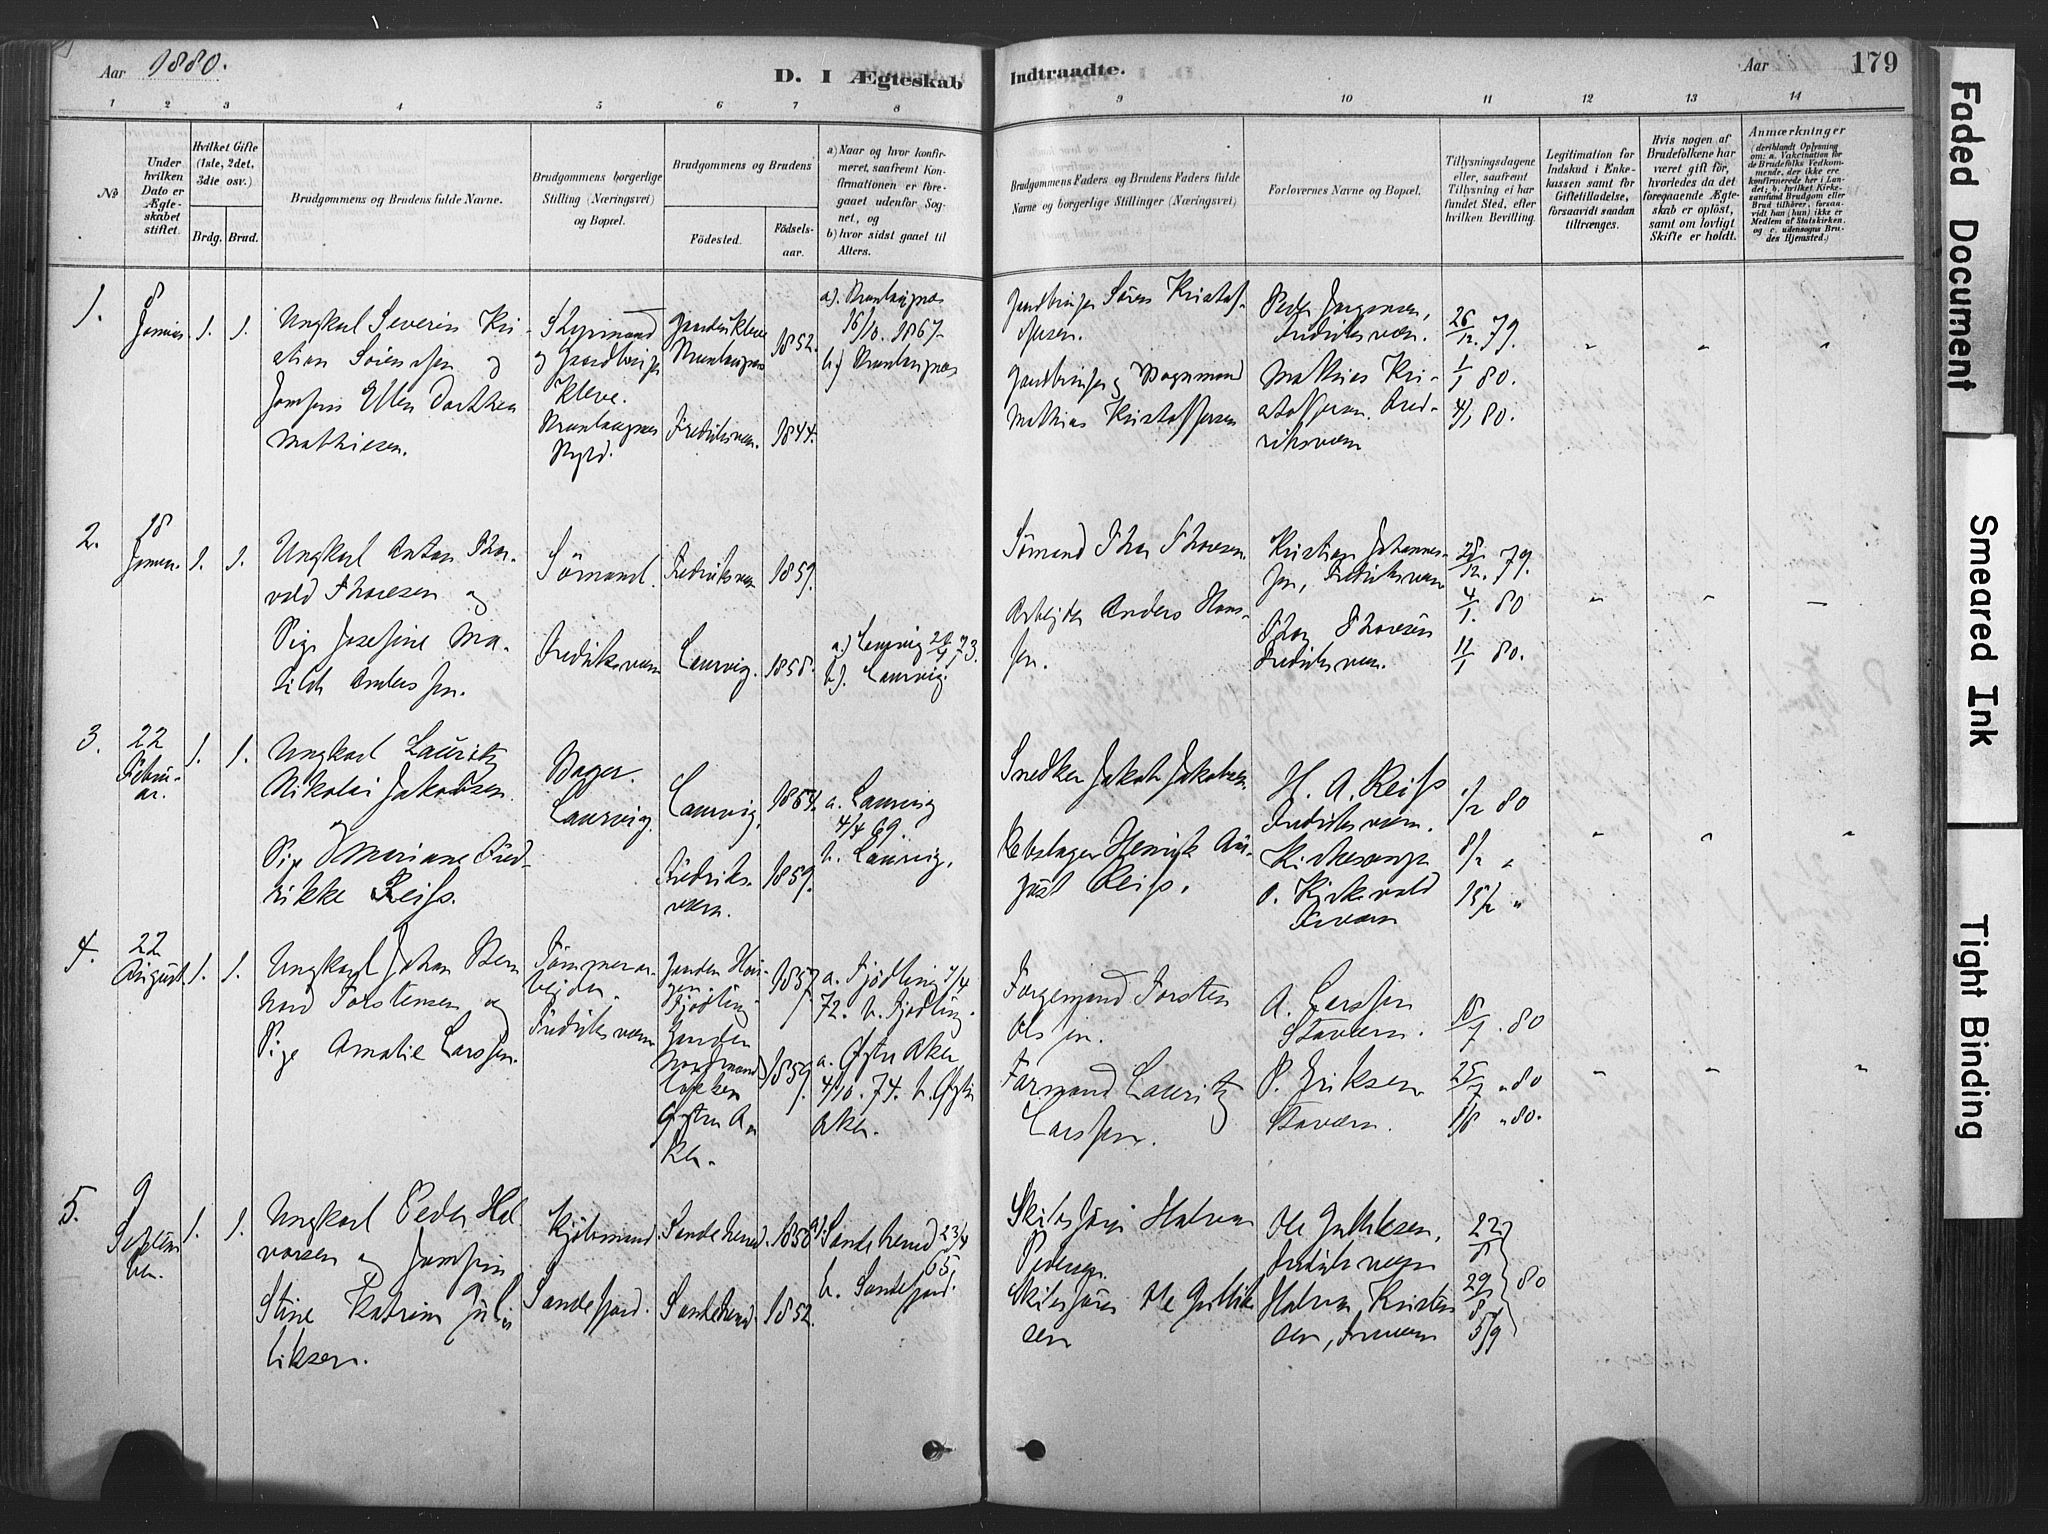 Aar 1880.
D. I Ægteskab
Indtraadte.
Aar
179
1 2 3 4 5 6 7 8
9 10 11 12 13 14
No
Under hvilken Dato er Ægteskabet stiftet.
Hvilket Gifte (1ste, 2det, 3die osv.)
Brdg. Brud.
Brudgommens og Brudens fulde Navne.
Brudgommens borgerlige Stilling (Næringsvei) og Bopæl.
Brudgommens og Brudens
Födested.
Födselsaar.
a) Naar og hvor konfirmeret, saafremt Konfirmationen er foregaaet udenfor Sognet, og
b) hvor sidst gaaet til Alters.
Brudgommens Faders og Brudens Faders fulde Navne og borgerlige Stillinger (Næringsvei)
Forlovernes Navne og Bopæl.
Tillysningsdagene eller, saafremt Tillysning ei har fundet Sted, efter hvilken Bevilling.
Legitimation for Indskud i Enkekassen samt for Giftetilladelse, forsaavidt saadan tiltrænges.
Hvis nogen af Brudefolkene har været gift för, hvorledes da det foregaaende Ægteskab er oplöst, samt om lovligt Skifte er holdt.
Anmærkninger
(deriblandt Oplysning om: a. Vakcination for de Brudefolks Vedkommende, der ikke ere konfirmerede her i Landet; b. hvilket Kirkesamfund Brudgom eller Brud tilhörer, forsaavidt han (hun) ikke er Medlem af Statskirken. og c. udensogns Brudes Hjemsted.)
1. 8 Januar. 1. 1.
Ungkarl Severin Kristian Sörensen og
Jomfru Ellen Dorthea Mathiesen.
Kleve.
1852.
Fredriksværn. 1844.
16/10. 1867
Sören Kristoffersen.
Mathias Kristoffersen
Peder Jörgensen, Fredriksværn.
Mathias Kristoffersen. Fredriksværn
26/12 79.
1/1 80.
4/1 80.
2. 18 Januar. 1. 1.
Ungkarl Anton Thorvald Thoresen og
Pige Josefine Matilde Anderssen.
Sömand.
Fredriksværn
Fredriksværn 1859.
Laurvig. 1858.
a.) Laurvig
b). Laurvig.
Sömand Thor Thoresen.
Arbejder Anders Hanssen.
Kristian Johannessen, Fredriksværn
Thor Thoresen Fredriksværn.
28/12. 79.
4/1. 80
11/1 80.
3. 22 Februar. 1. 1.
Ungkarl Lauritz Nikolai Jakobsen.
og
Pige Mariane Fredrikke Reiss.
Bager.
Laurvig.
Laurvig.
Fredriksværn. 1859.
a. Laurvig 4/4 69.
b. Laurvig.
Snedker Jakob Jakobsen
Rebslager Henrik August Reiss.
H. A. Reiss Fredriksværn.
Kirkesanger O. Kirkevold
1/2 80
8/2 "
15/2 "
4. 22 August. 1. 1.
Ungkarl Johan Bernhard Torstensen og
Pige Amalie Larssen.
Tömmerarbejder.
Fredriksværn
Fjödling
1857
Östre Aker. 1859.
a. Fjödling 72. b. Fjödling.
a. Östre Aker 4/10. 74. b. Östre Aker.
Torsten Olssen.
Formand Lauritz Larssen.
A. Larssen Staværn.
P. Eriksen Staværn.
18/7. 80
25/7 " 80
1/8 " 80.
5. 9 September. 1. 1.
Ungkarl Peder Halvorsen og Jomfru
Stine Katrine Gulliksen.
Kjöbmand
Sandefjord.
Sandeherred. 1858
Sandeherred. 1852.
a). Sandeherred 23/4
b. Sandefjord.
Halvor Pedersen.
Ole Gulliksen
Ole Gulliksen, Fredriksværn
Halvor Kristensen,
22/8
29/8
5/9
80
Faded Document
Smeared Ink
Tight Binding